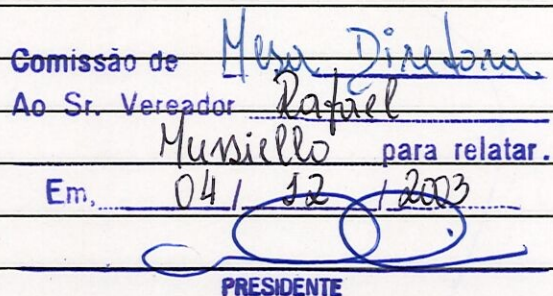 Comissão de Mesa Diretora
Ao Sr. Vereador Rafael
Mussiello para relatar.
Em, 04 / 12 / 2003
PRESIDENTE